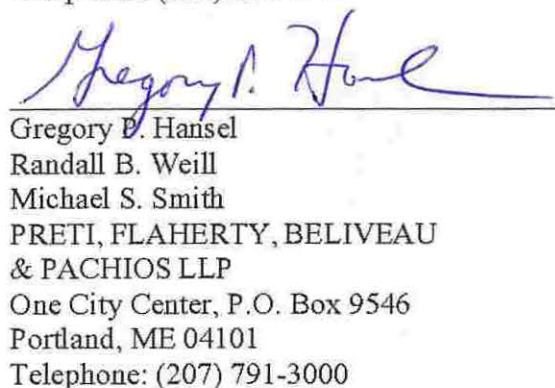 Gregory P. Hansel
Gregory P. Hansel
Randall B. Weill
Michael S. Smith
PRETI, FLAHERTY, BELIVEAU
& PACHIOS LLP
One City Center, P.O. Box 9546
Portland, ME 04101
Telephone: (207) 791-3000